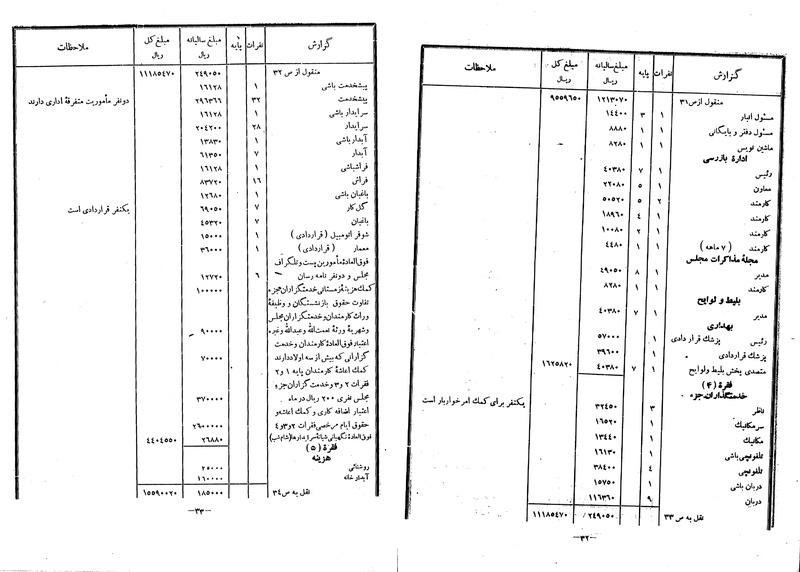 گزارش نفرات پایه مبلغ سالیانه ریال مبلغ کل ریال ملاحظات
منقول از ص ۳۱ ۱۲۱۳۰۷۰ ۹۵۵۹۶۵۰
مسئول انبار ۱ ۳ ۱۴۴۰۰
مسئول دفتر و بایگانی ۱ ۱ ۸۸۸۰
ماشین نویس ۱ ۱ ۸۲۸۰
ادارۀ بازرسی
رئیس ۱ ۷ ۴۰۳۸۰
معاون ۱ ۵ ۲۲۰۸۰
کارمند ۲ ۵ ۵۰۵۲۰
کارمند ۱ ۴ ۱۸۹۶۰
کارمند ۱ ۲ ۱۰۰۸۰
کارمند (۷ ماهه) ۱ ۱ ۴۴۸۰
مجلۀ مذاکرات مجلس
مدیر ۱ ۸ ۴۹۰۵۰
کارمند ۱ ۱ ۸۲۸۰
بلیط و لوایح
مدیر ۱ ۷ ۴۰۳۸۰
بهداری
رئیس پزشک قراردادی ۱ ۵۷۰۰۰
پزشک قراردادی ۱ ۳۹۶۰۰
متصدی پخش بلیط ولوایح ۱ ۷ ۴۰۳۸۰ ۱۶۲۵۸۲۰
فقرۀ (۴)
خدمتگذاران جزء
ناظر ۳ ۳۲۴۵۰ یکنفر برای کمک امر خواربار است
سرمکانیک ۱ ۱۶۵۲۰
مکانیک ۱ ۱۳۴۴۰
تلفونچی باشی ۱ ۱۶۱۳۰
تلفونچی ۴ ۳۸۴۰۰
دربان باشی ۱ ۱۵۷۵۰
دربان ۹ ۱۱۶۳۶۰
نقل به ص ۳۳ ۲۴۹۰۵۰ ۱۱۱۸۵۴۷۰
—۳۲—
گزارش نفرات پایه مبلغ سالیانه ریال مبلغ کل ریال ملاحظات
منقول از ص ۳۲ ۲۴۹۰۵۰ ۱۱۱۸۵۴۷۰
پیشخدمت باشی ۱ ۱۶۱۲۸
پیشخدمت ۳۲ ۲۹۶۳۶۶ دونفر مأموریت متفرقۀ اداری دارند
سرایدار باشی ۱ ۱۶۱۲۸
سرایدار ۲۸ ۲۰۴۲۰۰
آبدار باشی ۱ ۱۳۸۳۰
آبدار ۷ ۶۱۳۵۰
فراشباشی ۱ ۱۶۱۲۸
فراش ۱۶ ۸۳۷۲۰
باغبان باشی ۱ ۱۲۶۸۰
گل کار ۷ ۶۹۰۵۰ یکنفر قراردادی است
باغبان ۷ ۴۵۳۲۰
شوفر اتومبیل (قراردادی) ۱ ۱۵۰۰۰
معمار (قراردادی) ۱ ۳۶۰۰۰
فوق العادۀ مأمورین پست و تلگراف
مجلس و دونفر نامه رسان ۶ ۱۲۷۲۰
کمک هزینۀ زمستانی خدمتگزاران جزء ۱۰۰۰۰۰
تفاوت حقوق بازنشستگان و وظیفۀ
وراث کارمندان و خدمتگزاران مجلس
و شهریۀ ورثۀ نعمت الله و عبدالله وغیره ۹۰۰۰۰
اعتبار فوق العادۀ کارمندان و خدمت
گزارانی که بیش از سه اولاد دارند ۷۰۰۰۰
کمک اعاشۀ کارمندان پایه ۱ و ۲
فقرات ۲ و ۳ و خدمت گزاران جزء
مجلس نفری ۲۰۰ ریال در ماه ۳۷۰۰۰۰
اعتبار اضافه کاری و کمک اعاشه و
حقوق ایام مرخصی فقرات ۲ و ۳ و ۴ ۲۶۰۰۰۰۰
فوق العادۀ نگهبانی شبانۀ سرایدارها (شام شب) ۲۶۸۸۰ ۴۴۰۴۵۵۰
فقرۀ (۵)
هزینه
روشنائی ۲۵۰۰۰
آبدار خانه ۱۶۰۰۰۰
نقل به ص ۳۴ ۱۸۵۰۰۰ ۱۵۵۹۰۰۲۰
—۳۳—